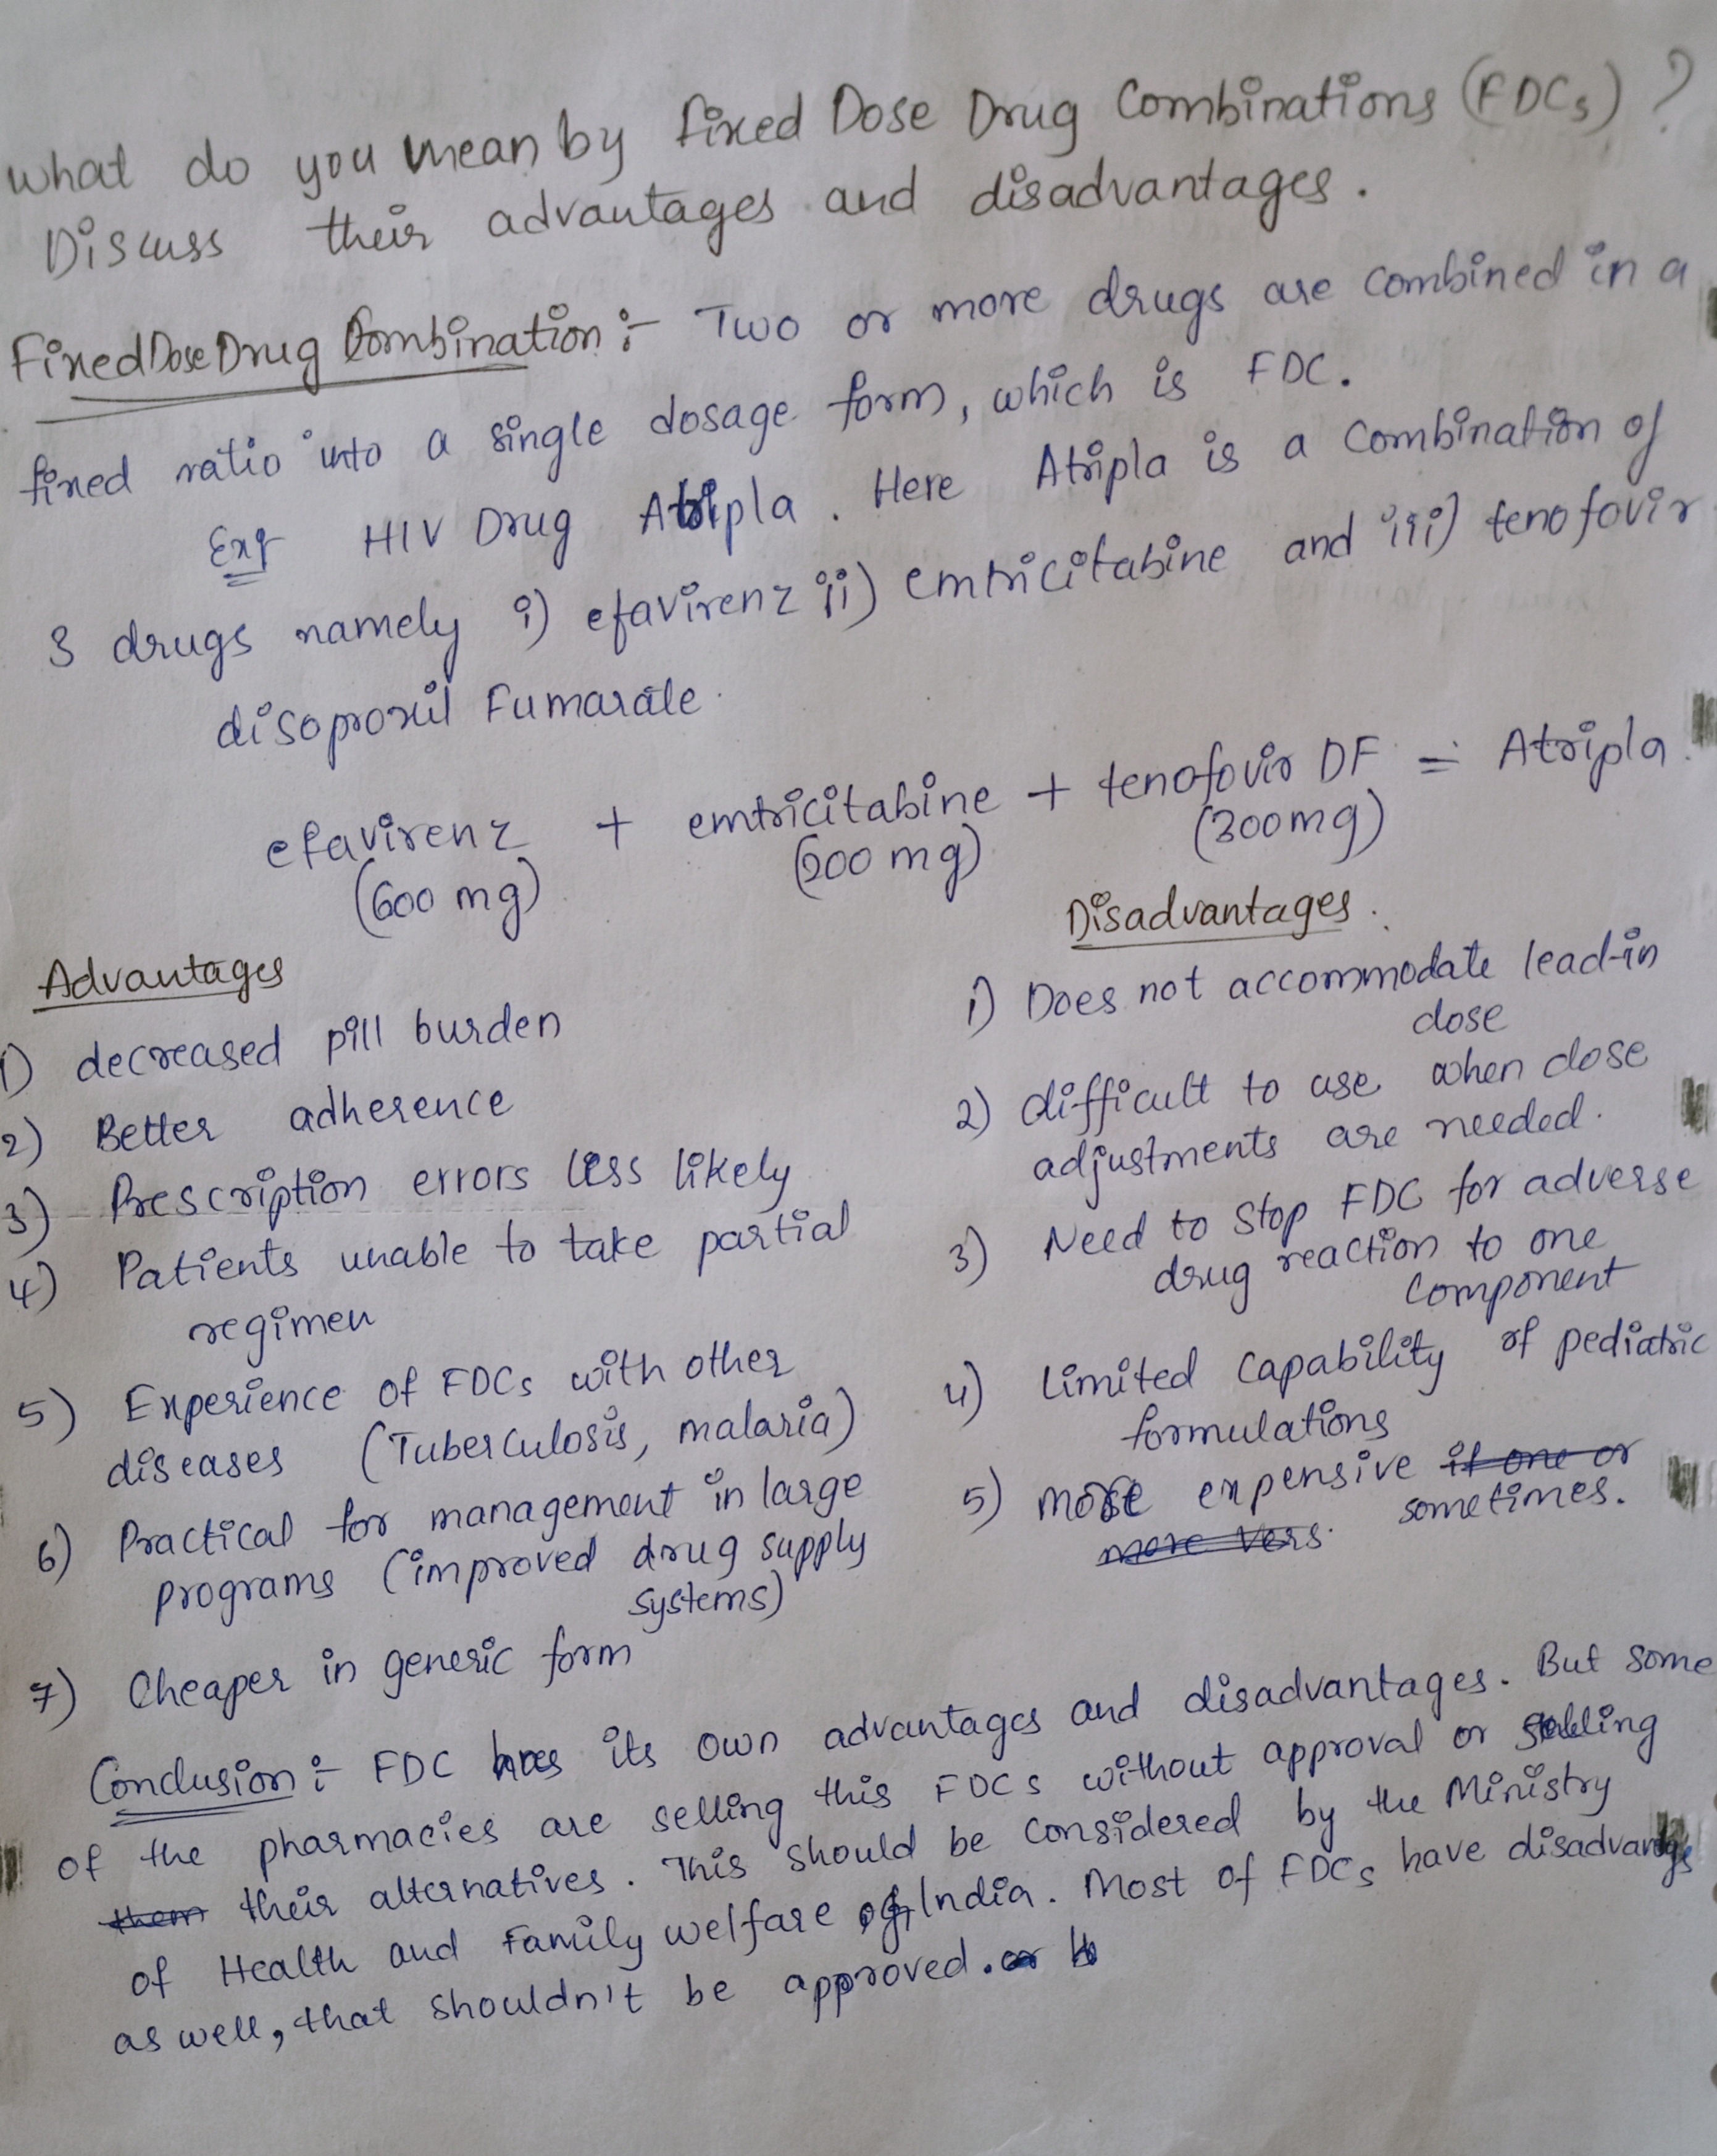 What do you mean by Fixed Dose Drug Combinations (FDCs) ?
Discuss their advantages and disadvantages.
Fixed Dose Drug Combination :- Two or more drugs are combined in a
fixed ratio into a single dosage form, which is FDC.
Exp HIV Drug Atripla. Here Atripla is a combination of
3 drugs namely i) efavirenz ii) emtricitabine and iii) tenofovir
disoproxil Fumarate.
efavirenz + emtricitabine + tenofovir DF = Atripla.
(600 mg) (200 mg) (300mg)
Advantages
1) decreased pill burden
2) Better adherence
3) Prescription errors less likely
4) Patients unable to take partial
regimen
5) Experience of FDCs with other
diseases (Tuberculosis, malaria)
6) Practical for management in large
programs (improved drug supply
systems)
7) Cheaper in generic form
Disadvantages.
1) Does not accommodate lead-in
dose
2) difficult to use when dose
adjustments are needed.
3) Need to stop FDC for adverse
drug reaction to one
component
4) Limited capability of pediatric
formulations
5) more expensive if one or
more vers. sometimes.
Conclusion :- FDC has its own advantages and disadvantages. But some
of the pharmacies are selling this FDCs without approval or selling
them their alternatives. This should be considered by the Ministry
of Health and Family welfare of India. Most of FDCs have disadvantages
as well, that shouldn't be approved.